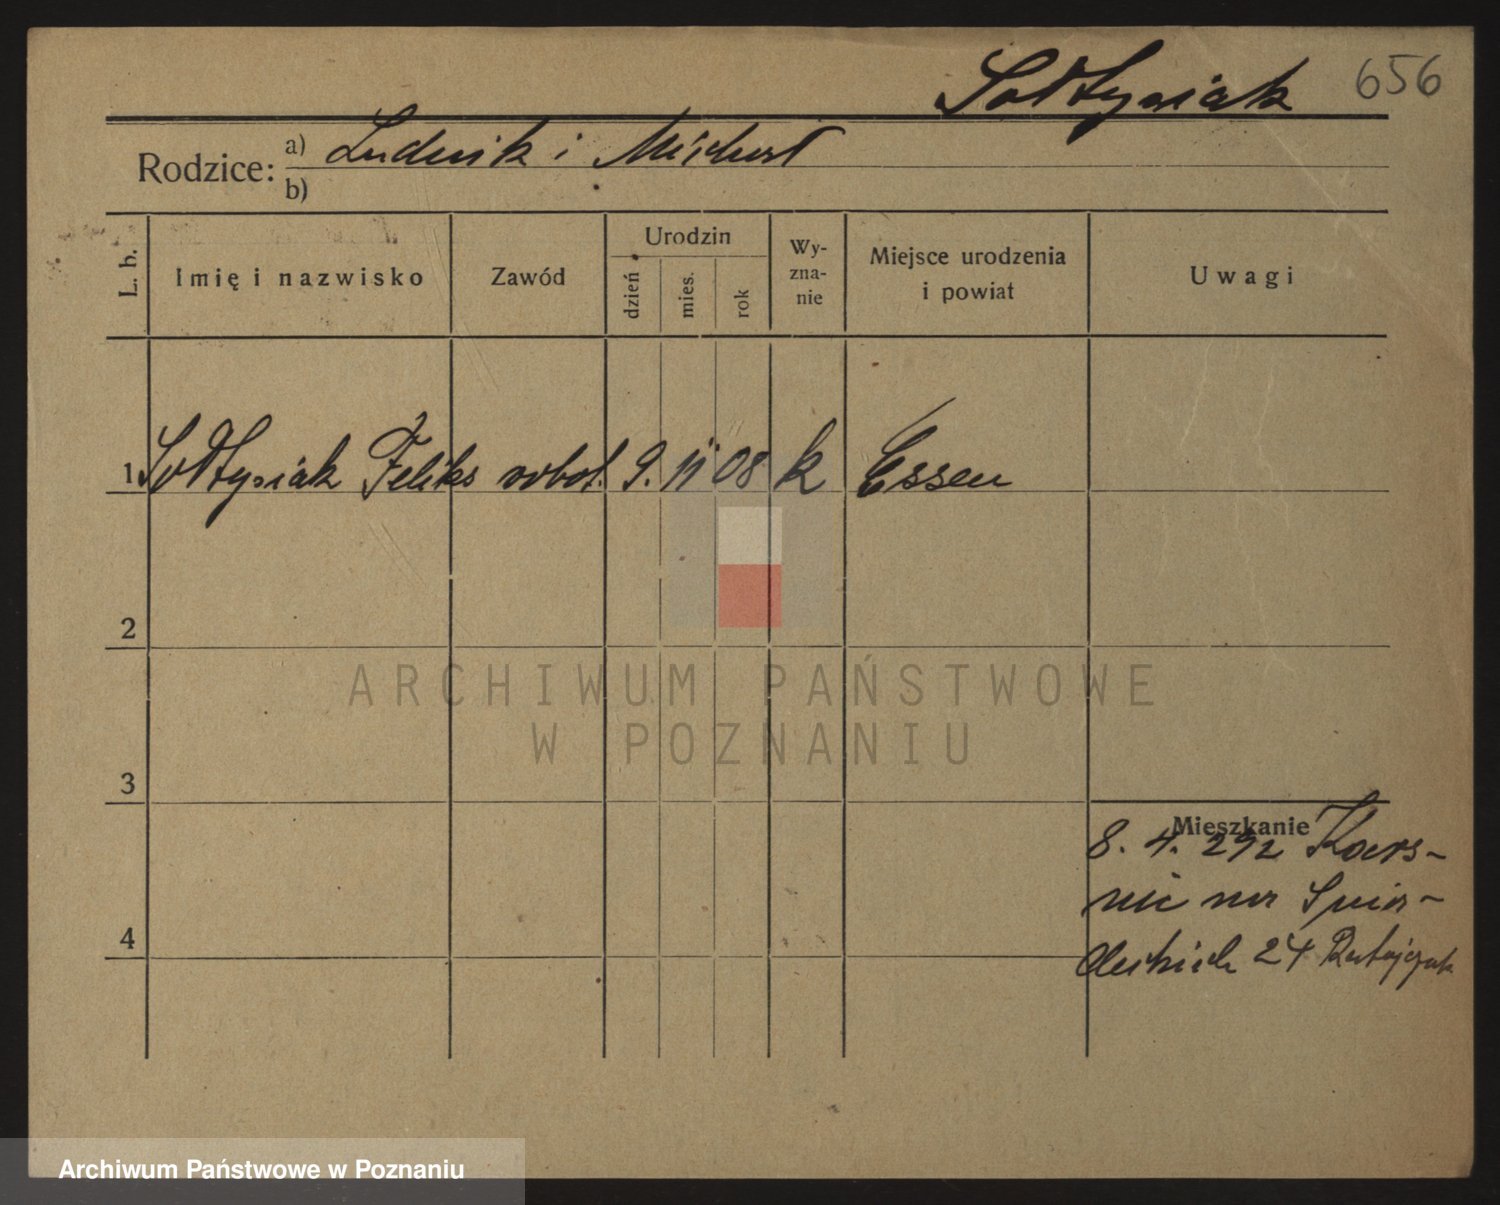 Sołtysiak 656
Rodzice: a) Ludwik i
b)
L. b. Imię i nazwisko Zawód Urodzin dzień mies. rok Wy-zna-nie Miejsce urodzenia i powiat Uwagi
1 Sołtysiak Feliks robot. 9. 11 08 k Essen
2
3
Mieszkanie
8. 4. 292
24 Ratajczak
4
ARCHIWUM PAŃSTWOWE
W POZNANIU
Archiwum Państwowe w Poznaniu